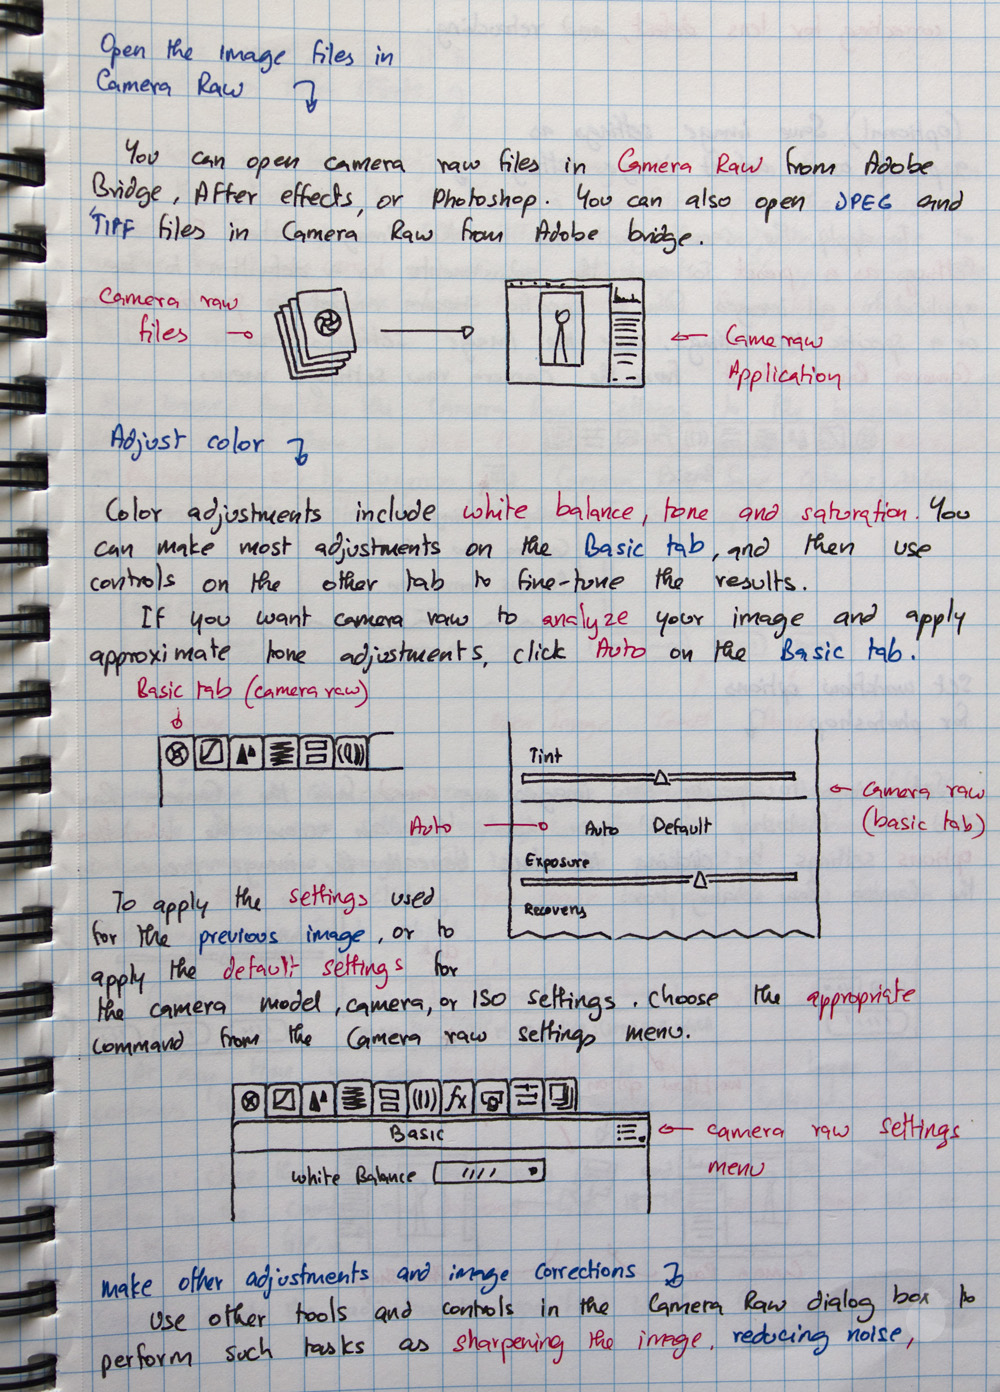 Open the image files in
Camera Raw
You can open camera raw files in Camera Raw from Adobe
Bridge, After effects, or Photoshop. You can also open JPEG and
TIFF files in Camera Raw from Adobe bridge.
Camera raw
files
Cameraraw
Application
Adjust color
Color adjustments include white balance, tone and saturation. You
can make most adjustments on the Basic tab, and then use
controls on the other tab to fine-tone the results.
If you want camera raw to analyze your image and apply
approximate tone adjustments, click Auto on the Basic tab.
Basic tab (camera raw)
Tint
Camera raw
(basic tab)
Auto
Auto Default
Exposure
Recovery
To apply the settings used
for the previous image, or to
apply the default settings for
the camera model, camera, or ISO settings. choose the appropriate
command from the Camera raw settings menu.
fx
Basic
camera raw settings
menu
White Balance
make other adjustments and image corrections
Use other tools and controls in the Camera Raw dialog box to
perform such tasks as sharpening the image, reducing noise,